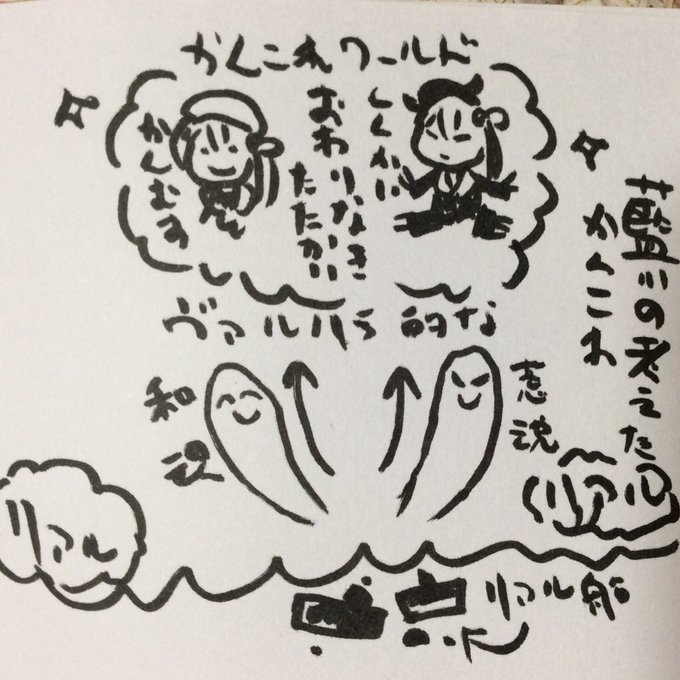 かんこれワールド
しんかい
おわりなき
たたかい
かんむす
藍川の考えた
かんこれ
ヴァルハラ的な
和魂
リアル
リアル
リアル船